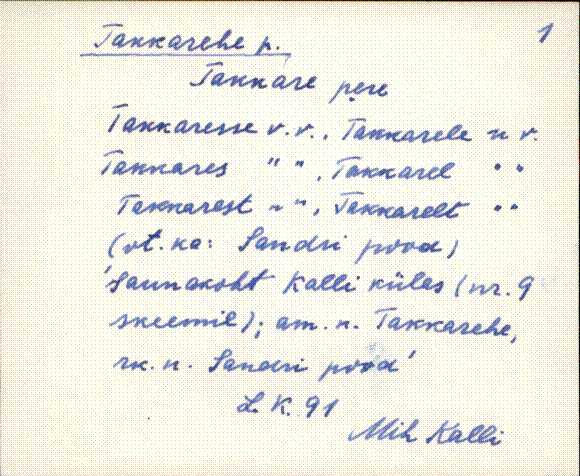 Takkarehe p. 1
Takkare pere
Takkaresse v.v., Takkarele n v.
Takkares " ", Takkarel " "
Takkarest " ", Takkarelt " "
(vt. ka: Sandri pood)
'Saunakoht Kalli külas (nr. 9
skeemil); am. n. Takkarehe,
rk. n. Sandri pood'
L. K. 91
Mih Kalli